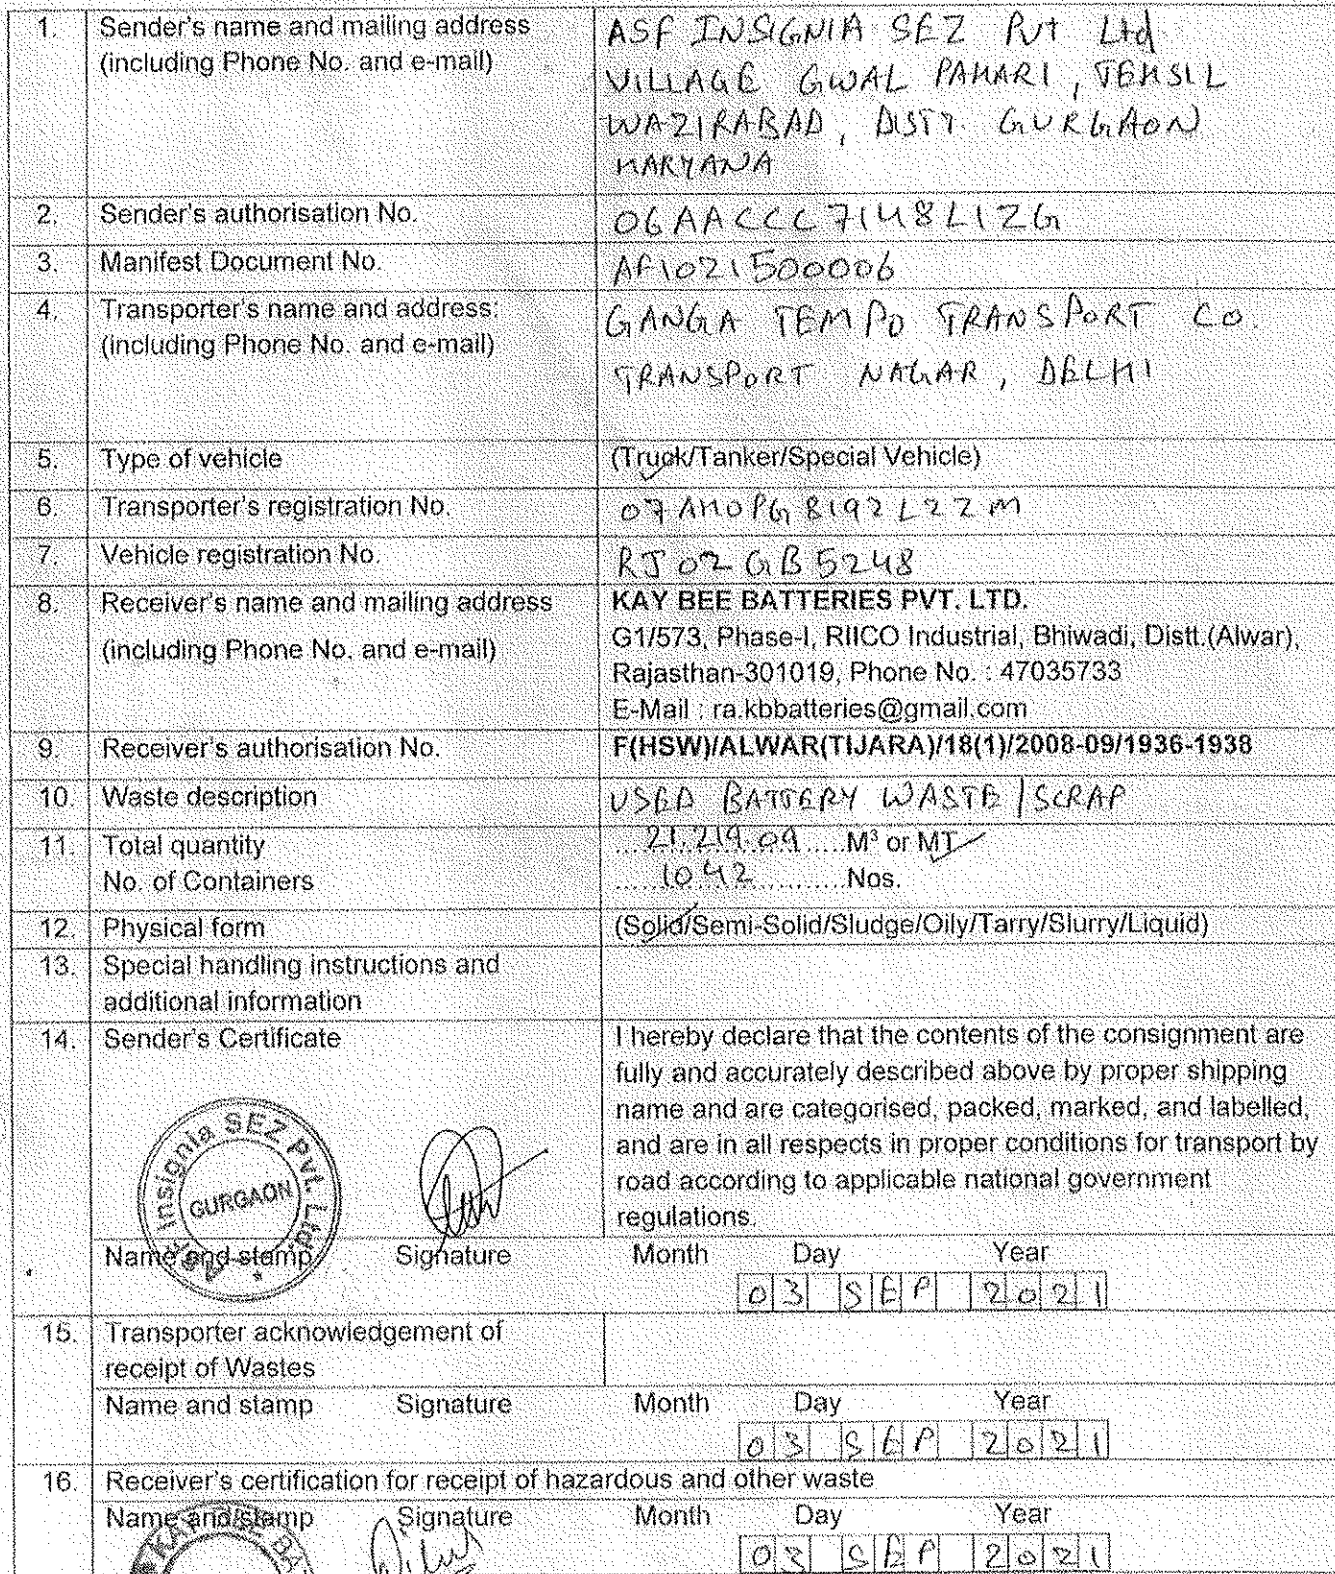 1. Sender's name and mailing address
(including Phone No. and e-mail)
ASF INSIGNIA SEZ Pvt Ltd
VILLAGE GWAL PAHARI, TEHSIL
WAZIRABAD, DISTT. GURGAON
HARYANA
2. Sender's authorisation No. 06AACCC7148L1ZG
3. Manifest Document No. AF1021500006
4. Transporter's name and address:
(including Phone No. and e-mail)
GANGA TEMPO TRANSPORT CO.
TRANSPORT NAGAR, DELHI
5. Type of vehicle (Truck/Tanker/Special Vehicle)
6. Transporter's registration No. 07AHOPG8192L2ZM
7. Vehicle registration No. RJ02GB5248
8. Receiver's name and mailing address
(including Phone No. and e-mail)
KAY BEE BATTERIES PVT. LTD.
G1/573, Phase-I, RIICO Industrial, Bhiwadi, Distt.(Alwar),
Rajasthan-301019, Phone No. : 47035733
E-Mail : ra.kbbatteries@gmail.com
9. Receiver's authorisation No. F(HSW)/ALWAR(TIJARA)/18(1)/2008-09/1936-1938
10. Waste description USED BATTERY WASTE/SCRAP
11. Total quantity 21.219.09 M³ or MT
No. of Containers 1042 Nos.
12. Physical form (Solid/Semi-Solid/Sludge/Oily/Tarry/Slurry/Liquid)
13. Special handling instructions and
additional information
14. Sender's Certificate
I hereby declare that the contents of the consignment are
fully and accurately described above by proper shipping
name and are categorised, packed, marked, and labelled,
and are in all respects in proper conditions for transport by
road according to applicable national government
regulations.
ASF Insignia SEZ Pvt. Ltd.
GURGAON
Name and stamp Signature Month Day Year
03 SEP 2021
15. Transporter acknowledgement of
receipt of Wastes
Name and stamp Signature Month Day Year
03 SEP 2021
16. Receiver's certification for receipt of hazardous and other waste
Name and stamp Signature Month Day Year
03 SEP 2021
KAY BEE BA